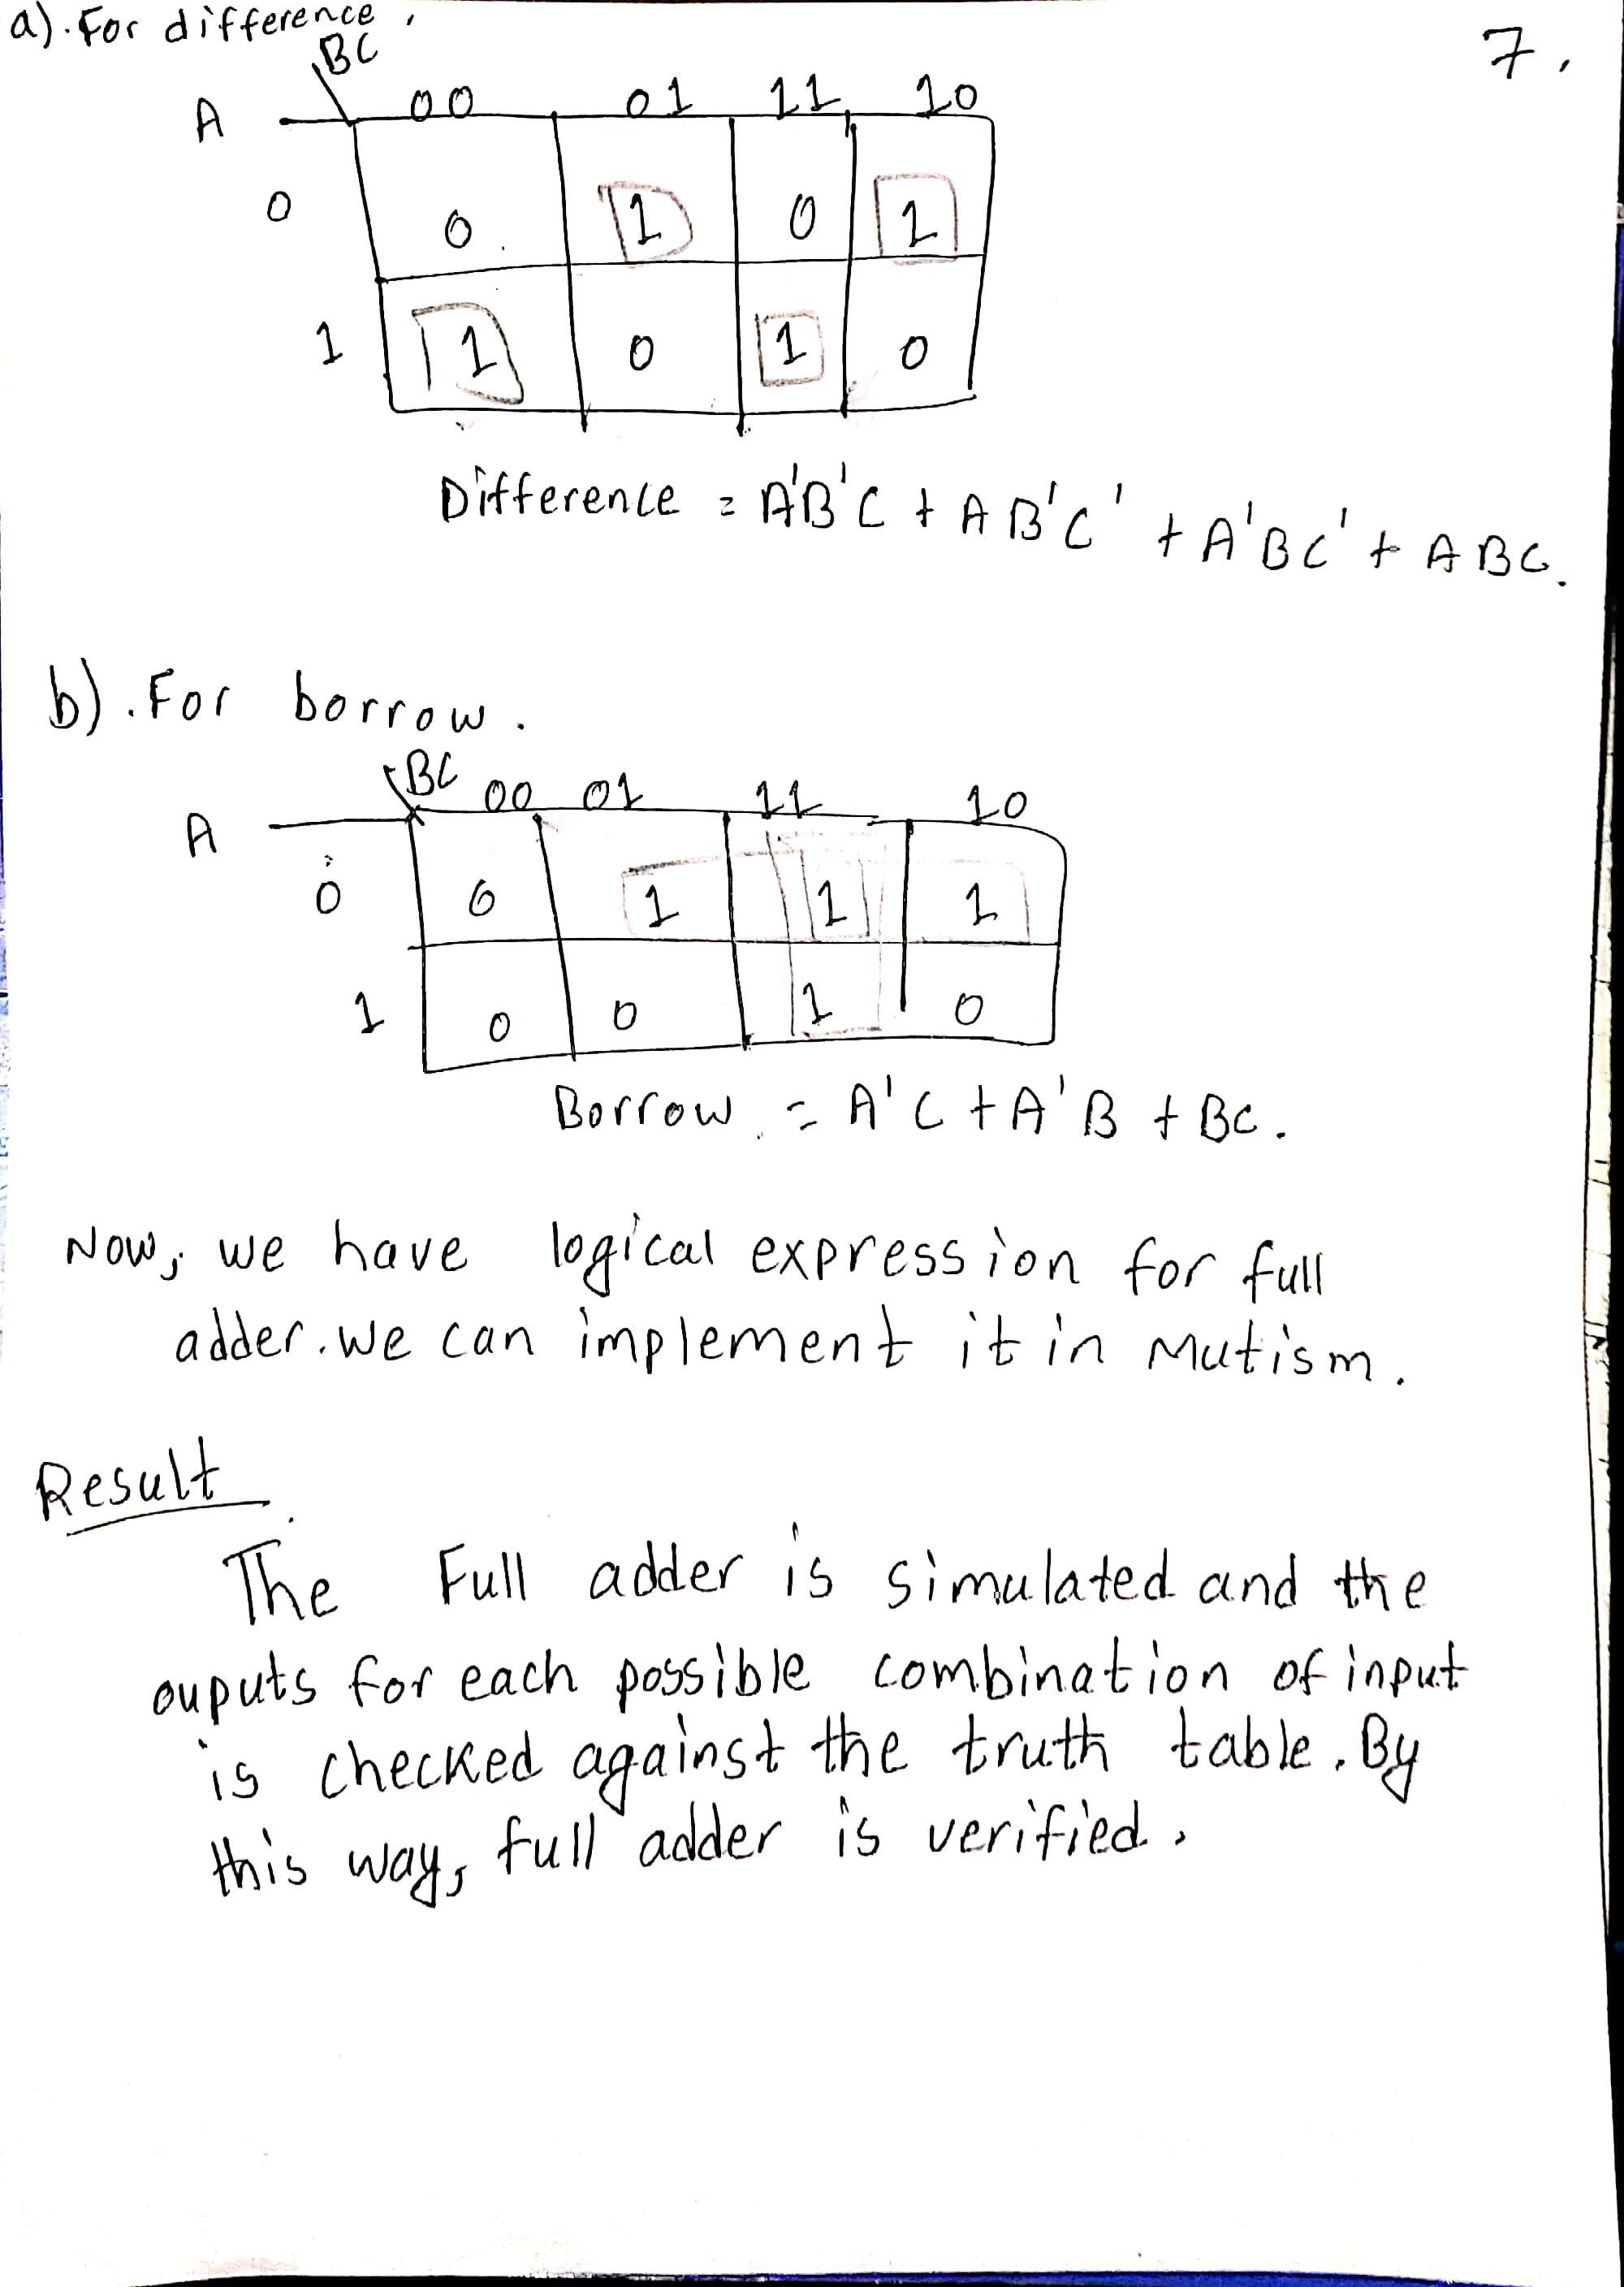 a). For difference.
7.
BC
A
00 01 11 10
0 0 1 0 1
1 1 0 1 0
Difference = A'B'C + AB'C' + A'BC' + ABC.
b). For borrow.
BC
A
00 01 11 10
0 0 1 1 1
1 0 0 1 0
Borrow = A'C + A'B + BC.
Now, we have logical expression for full
adder. We can implement it in Mutism.
Result
The Full adder is simulated and the
ouputs for each possible combination of input
is checked against the truth table. By
this way, full adder is verified.